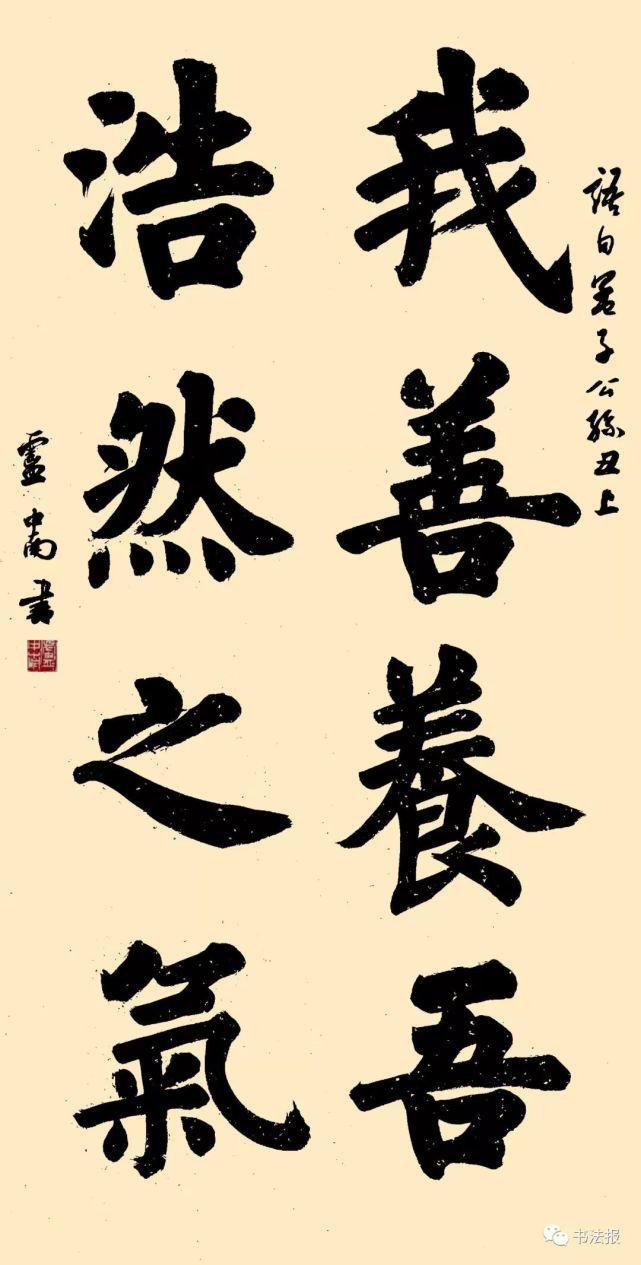 語自孟子公孫丑上
我善養吾
浩然之氣
盧中南書
书法报